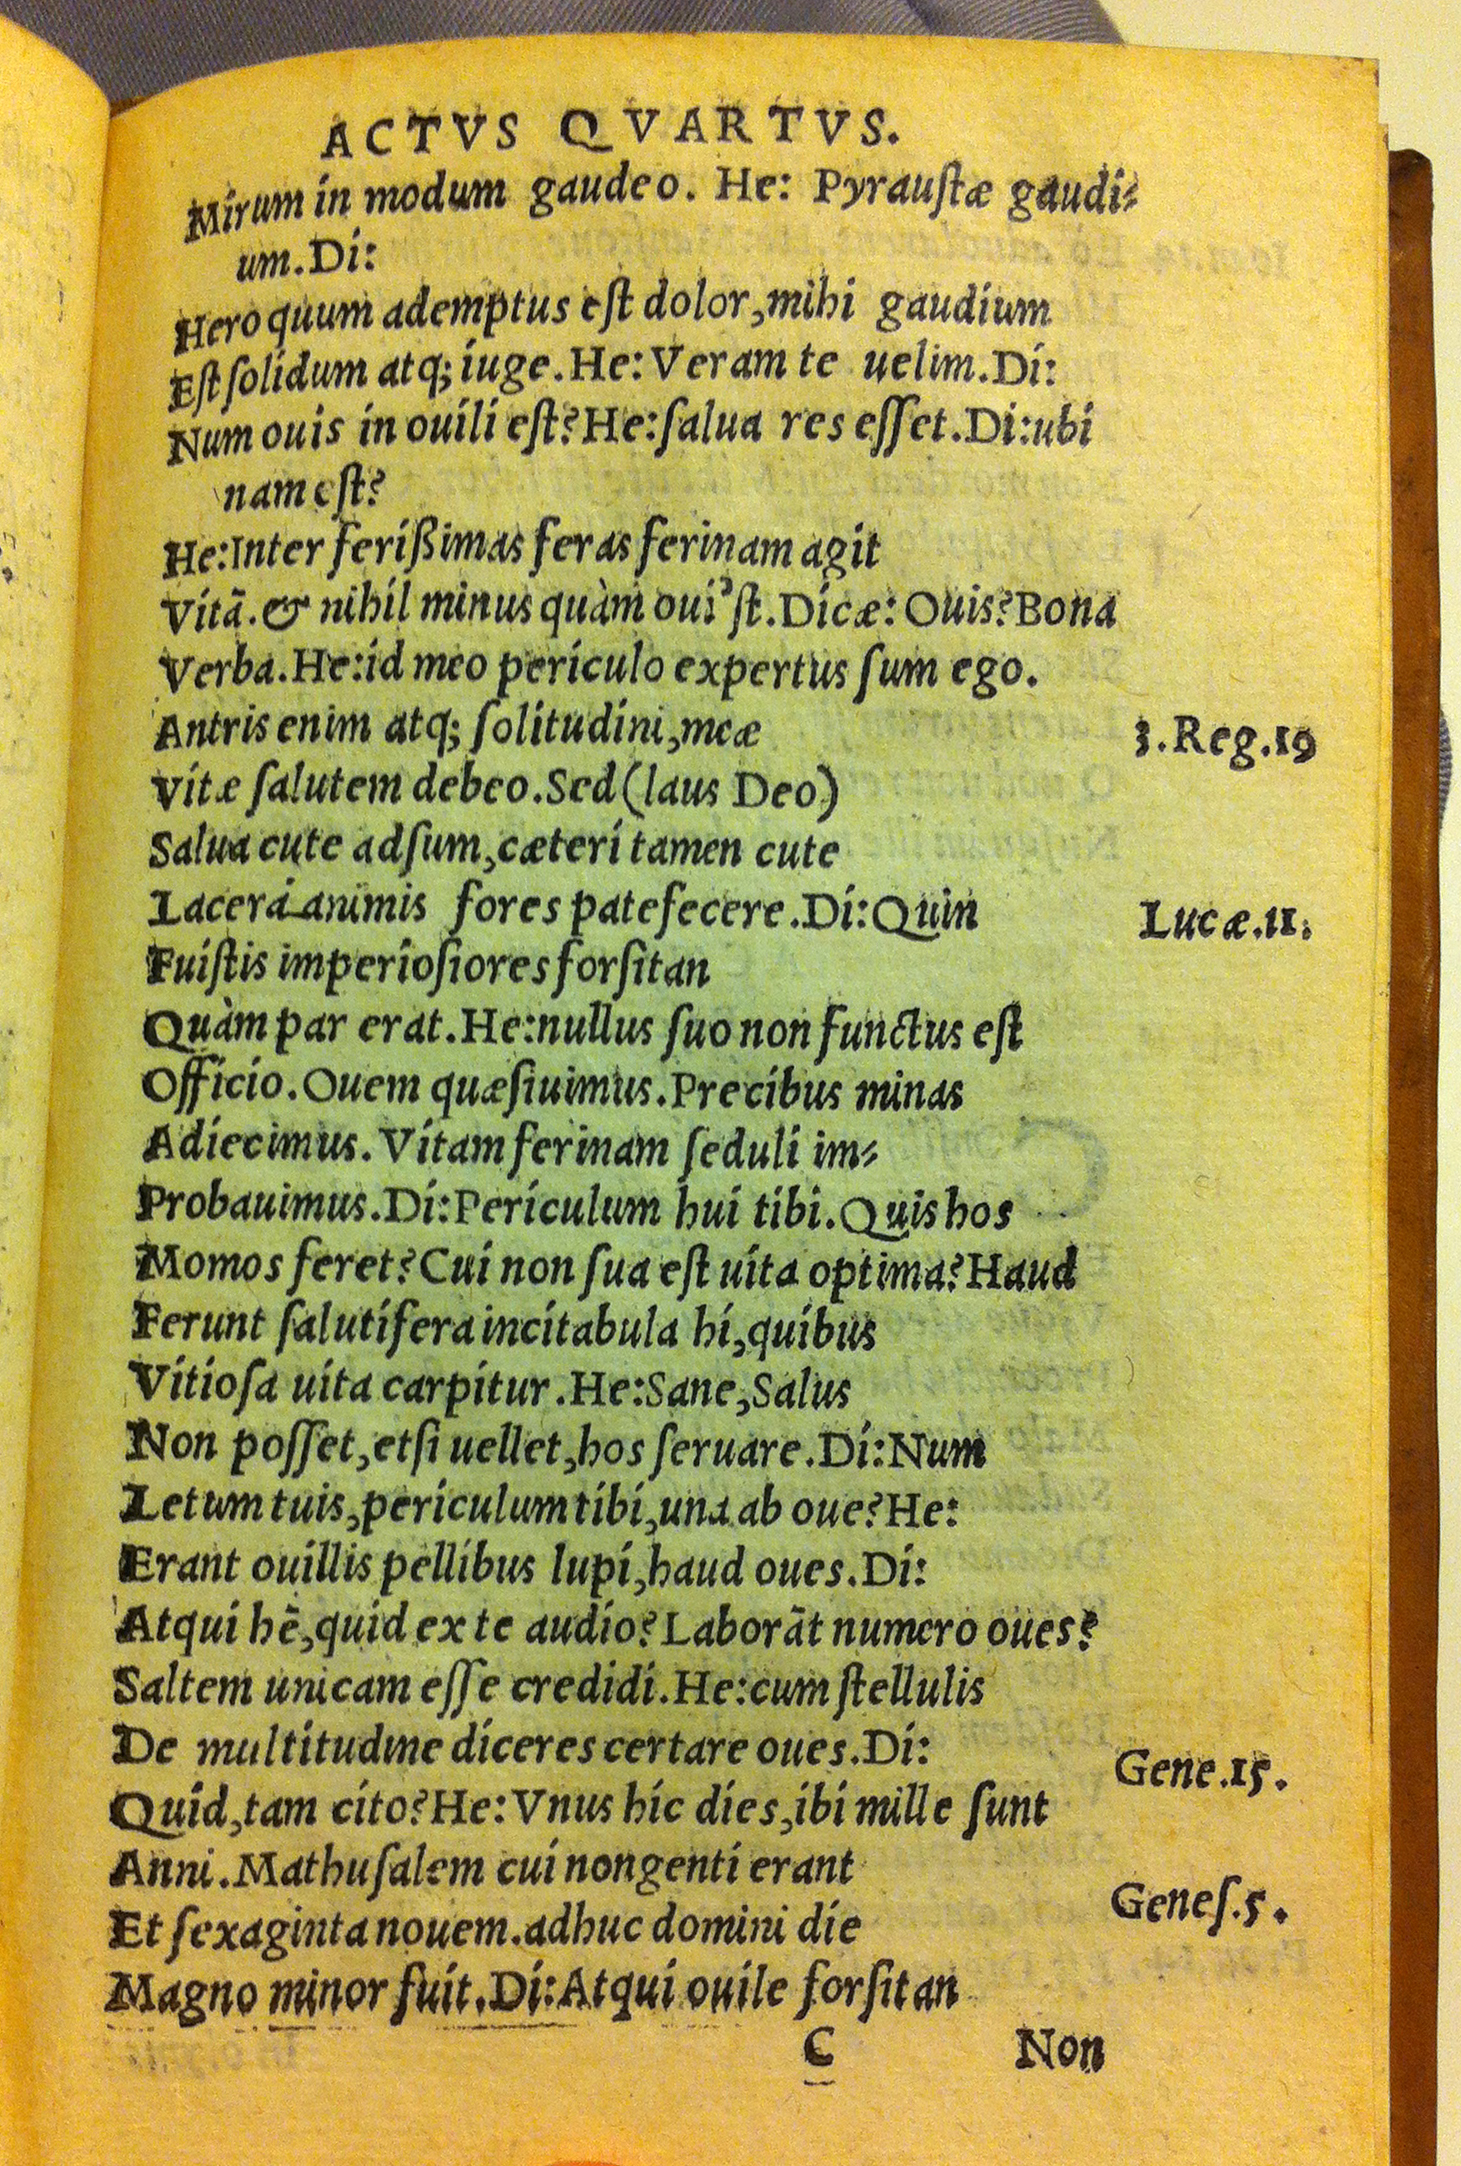 ACTVS QVARTVS.
Mirum in modum gaudeo. He: Pyraustæ gaudi⸗
um. Di:
Hero quum ademptus est dolor, mihi gaudium
Est solidum atq; iuge. He: Veram te uelim. Di:
Num ouis in ouili est? He: salua res esset. Di: ubi
nam est?
He: Inter ferißimas feras ferinam agit
Vitā. & nihil minus quàm oui'st. Dicæ: Ouis? Bona
Verba. He: id meo periculo expertus sum ego.
Antris enim atq; solitudini, meæ
3. Reg. 19
Vitæ salutem debeo. Sed (laus Deo)
Salua cute adsum, cæteri tamen cute
Lacera animis fores patefecere. Di: Quin
Lucæ. 11.
Fuistis imperiosiores forsitan
Quàm par erat. He: nullus suo non functus est
Officio. Ouem quæsiuimus. Precibus minas
Adiecimus. Vitam ferinam seduli im⸗
Probauimus. Di: Periculum hui tibi. Quis hos
Momos feret? Cui non sua est uita optima? Haud
Ferunt salutifera incitabula hi, quibus
Vitiosa uita carpitur. He: Sane, Salus
Non posset, etsi uellet, hos seruare. Di: Num
Letum tuis, periculum tibi, una ab oue? He:
Erant ouillis pellibus lupi, haud oues. Di:
Atqui hē, quid ex te audio? Laborāt numero oues?
Saltem unicam esse credidi. He: cum stellulis
De multitudine diceres certare oues. Di:
Gene. 15.
Quid, tam cito? He: Vnus hic dies, ibi mille sunt
Anni. Mathusalem cui nongenti erant
Genes. 5.
Et sexaginta nouem. adhuc domini die
Magno minor fuit. Di: Atqui ouile forsitan
C Non